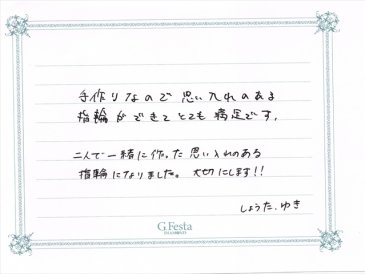 手作りなので思い入れのある
指輪ができてとても満足です。
二人で一緒に作った思い入れのある
指輪になりました。大切にします!!
しょうた、ゆき
G.Festa